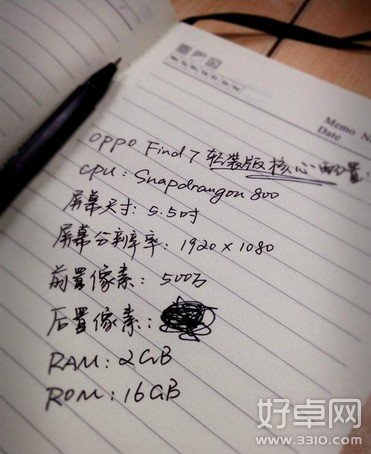 Memo No
Date
OPPO Find 7 轻装版核心配置:
CPU: Snapdraugon 800
屏幕尺寸: 5.5吋
屏幕分辨率: 1920×1080
前置像素: 500万
后置像素:
RAM: 2GB
ROM: 16GB
好卓网
www.33lO.com